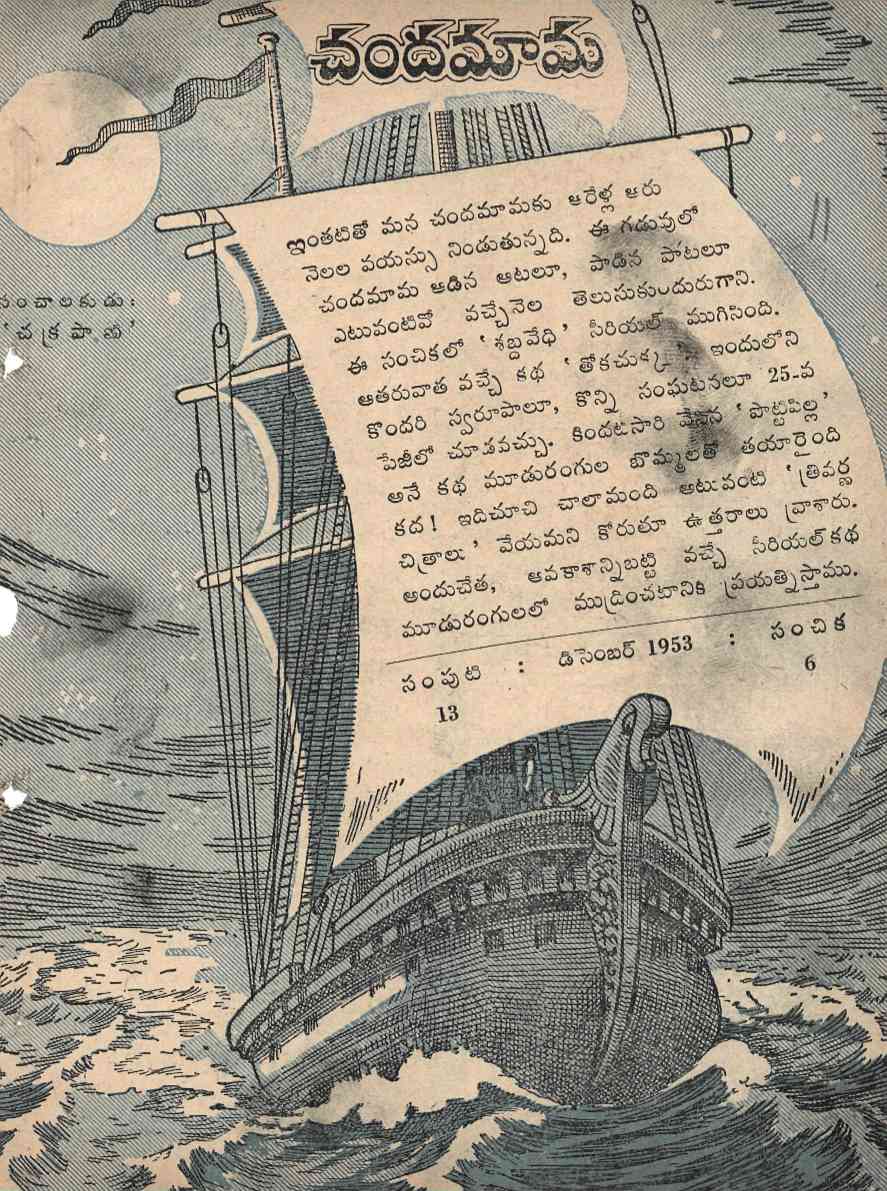 చందమామ
సంచాలకుడు :
'చక్రపాణి'
ఇంతటితో మన చందమామకు ఆరేళ్ల ఆరు
నెలల వయస్సు నిండుతున్నది. ఈ గడువులో
చందమామ ఆడిన ఆటలూ, పాడిన పాటలూ
ఎటువంటివో వచ్చేనెల తెలుసుకుందురుగాని.
ఈ సంచికలో 'శబ్దవేధి' సీరియల్ ముగిసింది.
ఆతరువాత వచ్చే కథ 'తోకచుక్క'. ఇందులోని
కొందరి స్వరూపాలూ, కొన్ని సంఘటనలూ 25-వ
పేజీలో చూడవచ్చు. కిందటిసారి వేసిన 'పొట్టిపిల్ల'
అనే కథ మూడురంగుల బొమ్మలతో తయారైంది
కద! ఇదిచూచి చాలామంది అటువంటి 'త్రివర్ణ
చిత్రాలు' వేయమని కోరుతూ ఉత్తరాలు వ్రాశారు.
అందుచేత, అవకాశాన్నిబట్టి వచ్చే సీరియల్ కథ
మూడురంగులలో ముద్రించటానికి ప్రయత్నిస్తాము.
సంపుటి : డిసెంబర్ 1953 : సంచిక
13 6